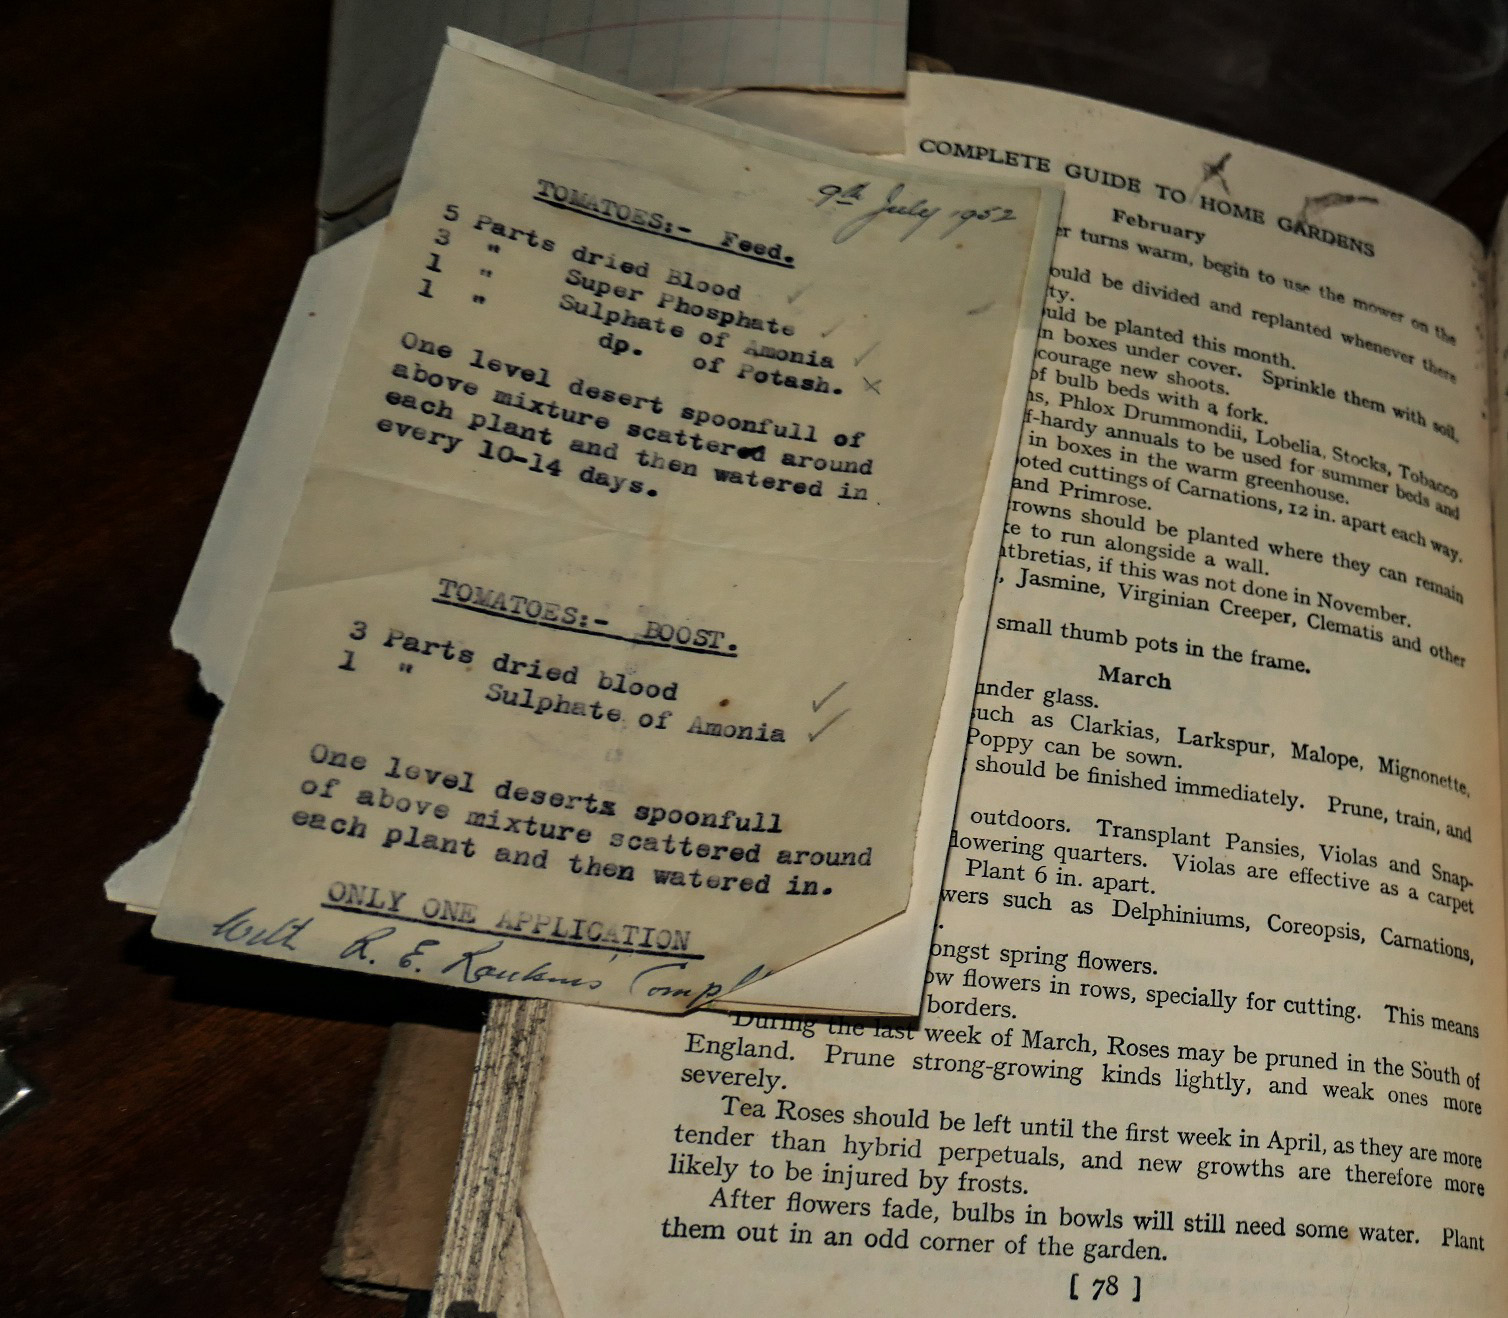 9th July 1952
TOMATOES:- Feed.
5 Parts dried Blood ✓
3 " Super Phosphate ✓
1 " Sulphate of Amonia ✓
1 " dp. of Potash. ×
One level desert spoonfull of
above mixture scattered around
each plant and then watered in
every 10-14 days.
TOMATOES:- BOOST.
3 Parts dried blood ✓
1 " Sulphate of Amonia ✓
One level deserts spoonfull
of above mixture scattered around
each plant and then watered in.
ONLY ONE APPLICATION
With R. E.
COMPLETE GUIDE TO HOME GARDENS
February
turns warm, begin to use the mower on the
be divided and replanted whenever there
be planted this month.
boxes under cover. Sprinkle them with soil,
new shoots.
of bulb beds with a fork.
Phlox Drummondii, Lobelia, Stocks, Tobacco
annuals to be used for summer beds and
in boxes in the warm greenhouse.
cuttings of Carnations, 12 in. apart each way.
and Primrose.
should be planted where they can remain
to run alongside a wall.
if this was not done in November.
, Jasmine, Virginian Creeper, Clematis and other
small thumb pots in the frame.
March
under glass.
such as Clarkias, Larkspur, Malope, Mignonette,
Poppy can be sown.
should be finished immediately. Prune, train, and
outdoors. Transplant Pansies, Violas and Snap-
flowering quarters. Violas are effective as a carpet
Plant 6 in. apart.
such as Delphiniums, Coreopsis, Carnations,
spring flowers.
flowers in rows, specially for cutting. This means
borders.
During the last week of March, Roses may be pruned in the South of
England. Prune strong-growing kinds lightly, and weak ones more
severely.
Tea Roses should be left until the first week in April, as they are more
tender than hybrid perpetuals, and new growths are therefore more
likely to be injured by frosts.
After flowers fade, bulbs in bowls will still need some water. Plant
them out in an odd corner of the garden.
[ 78 ]